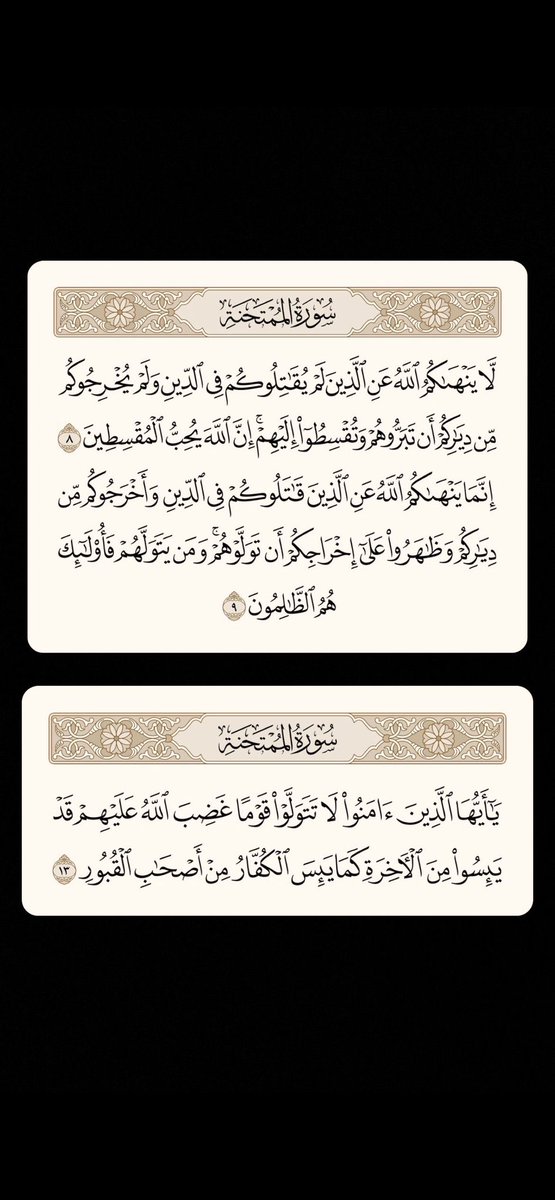 سُورَةُ المُمْتَحنَةِ
لَّا يَنْهَىٰكُمُ ٱللَّهُ عَنِ ٱلَّذِينَ لَمْ يُقَٰتِلُوكُمْ فِى ٱلدِّينِ وَلَمْ يُخْرِجُوكُم
مِّن دِيَٰرِكُمْ أَن تَبَرُّوهُمْ وَتُقْسِطُوٓا۟ إِلَيْهِمْ ۚ إِنَّ ٱللَّهَ يُحِبُّ ٱلْمُقْسِطِينَ ٨
إِنَّمَا يَنْهَىٰكُمُ ٱللَّهُ عَنِ ٱلَّذِينَ قَٰتَلُوكُمْ فِى ٱلدِّينِ وَأَخْرَجُوكُم مِّن
دِيَٰرِكُمْ وَظَٰهَرُوا۟ عَلَىٰٓ إِخْرَاجِكُمْ أَن تَوَلَّوْهُمْ ۚ وَمَن يَتَوَلَّهُمْ فَأُو۟لَٰٓئِكَ
هُمُ ٱلظَّٰلِمُونَ ٩
سُورَةُ المُمْتَحنَةِ
يَٰٓأَيُّهَا ٱلَّذِينَ ءَامَنُوا۟ لَا تَتَوَلَّوْا۟ قَوْمًا غَضِبَ ٱللَّهُ عَلَيْهِمْ قَدْ
يَئِسُوا۟ مِنَ ٱلْءَاخِرَةِ كَمَا يَئِسَ ٱلْكُفَّارُ مِنْ أَصْحَٰبِ ٱلْقُبُورِ ١٣